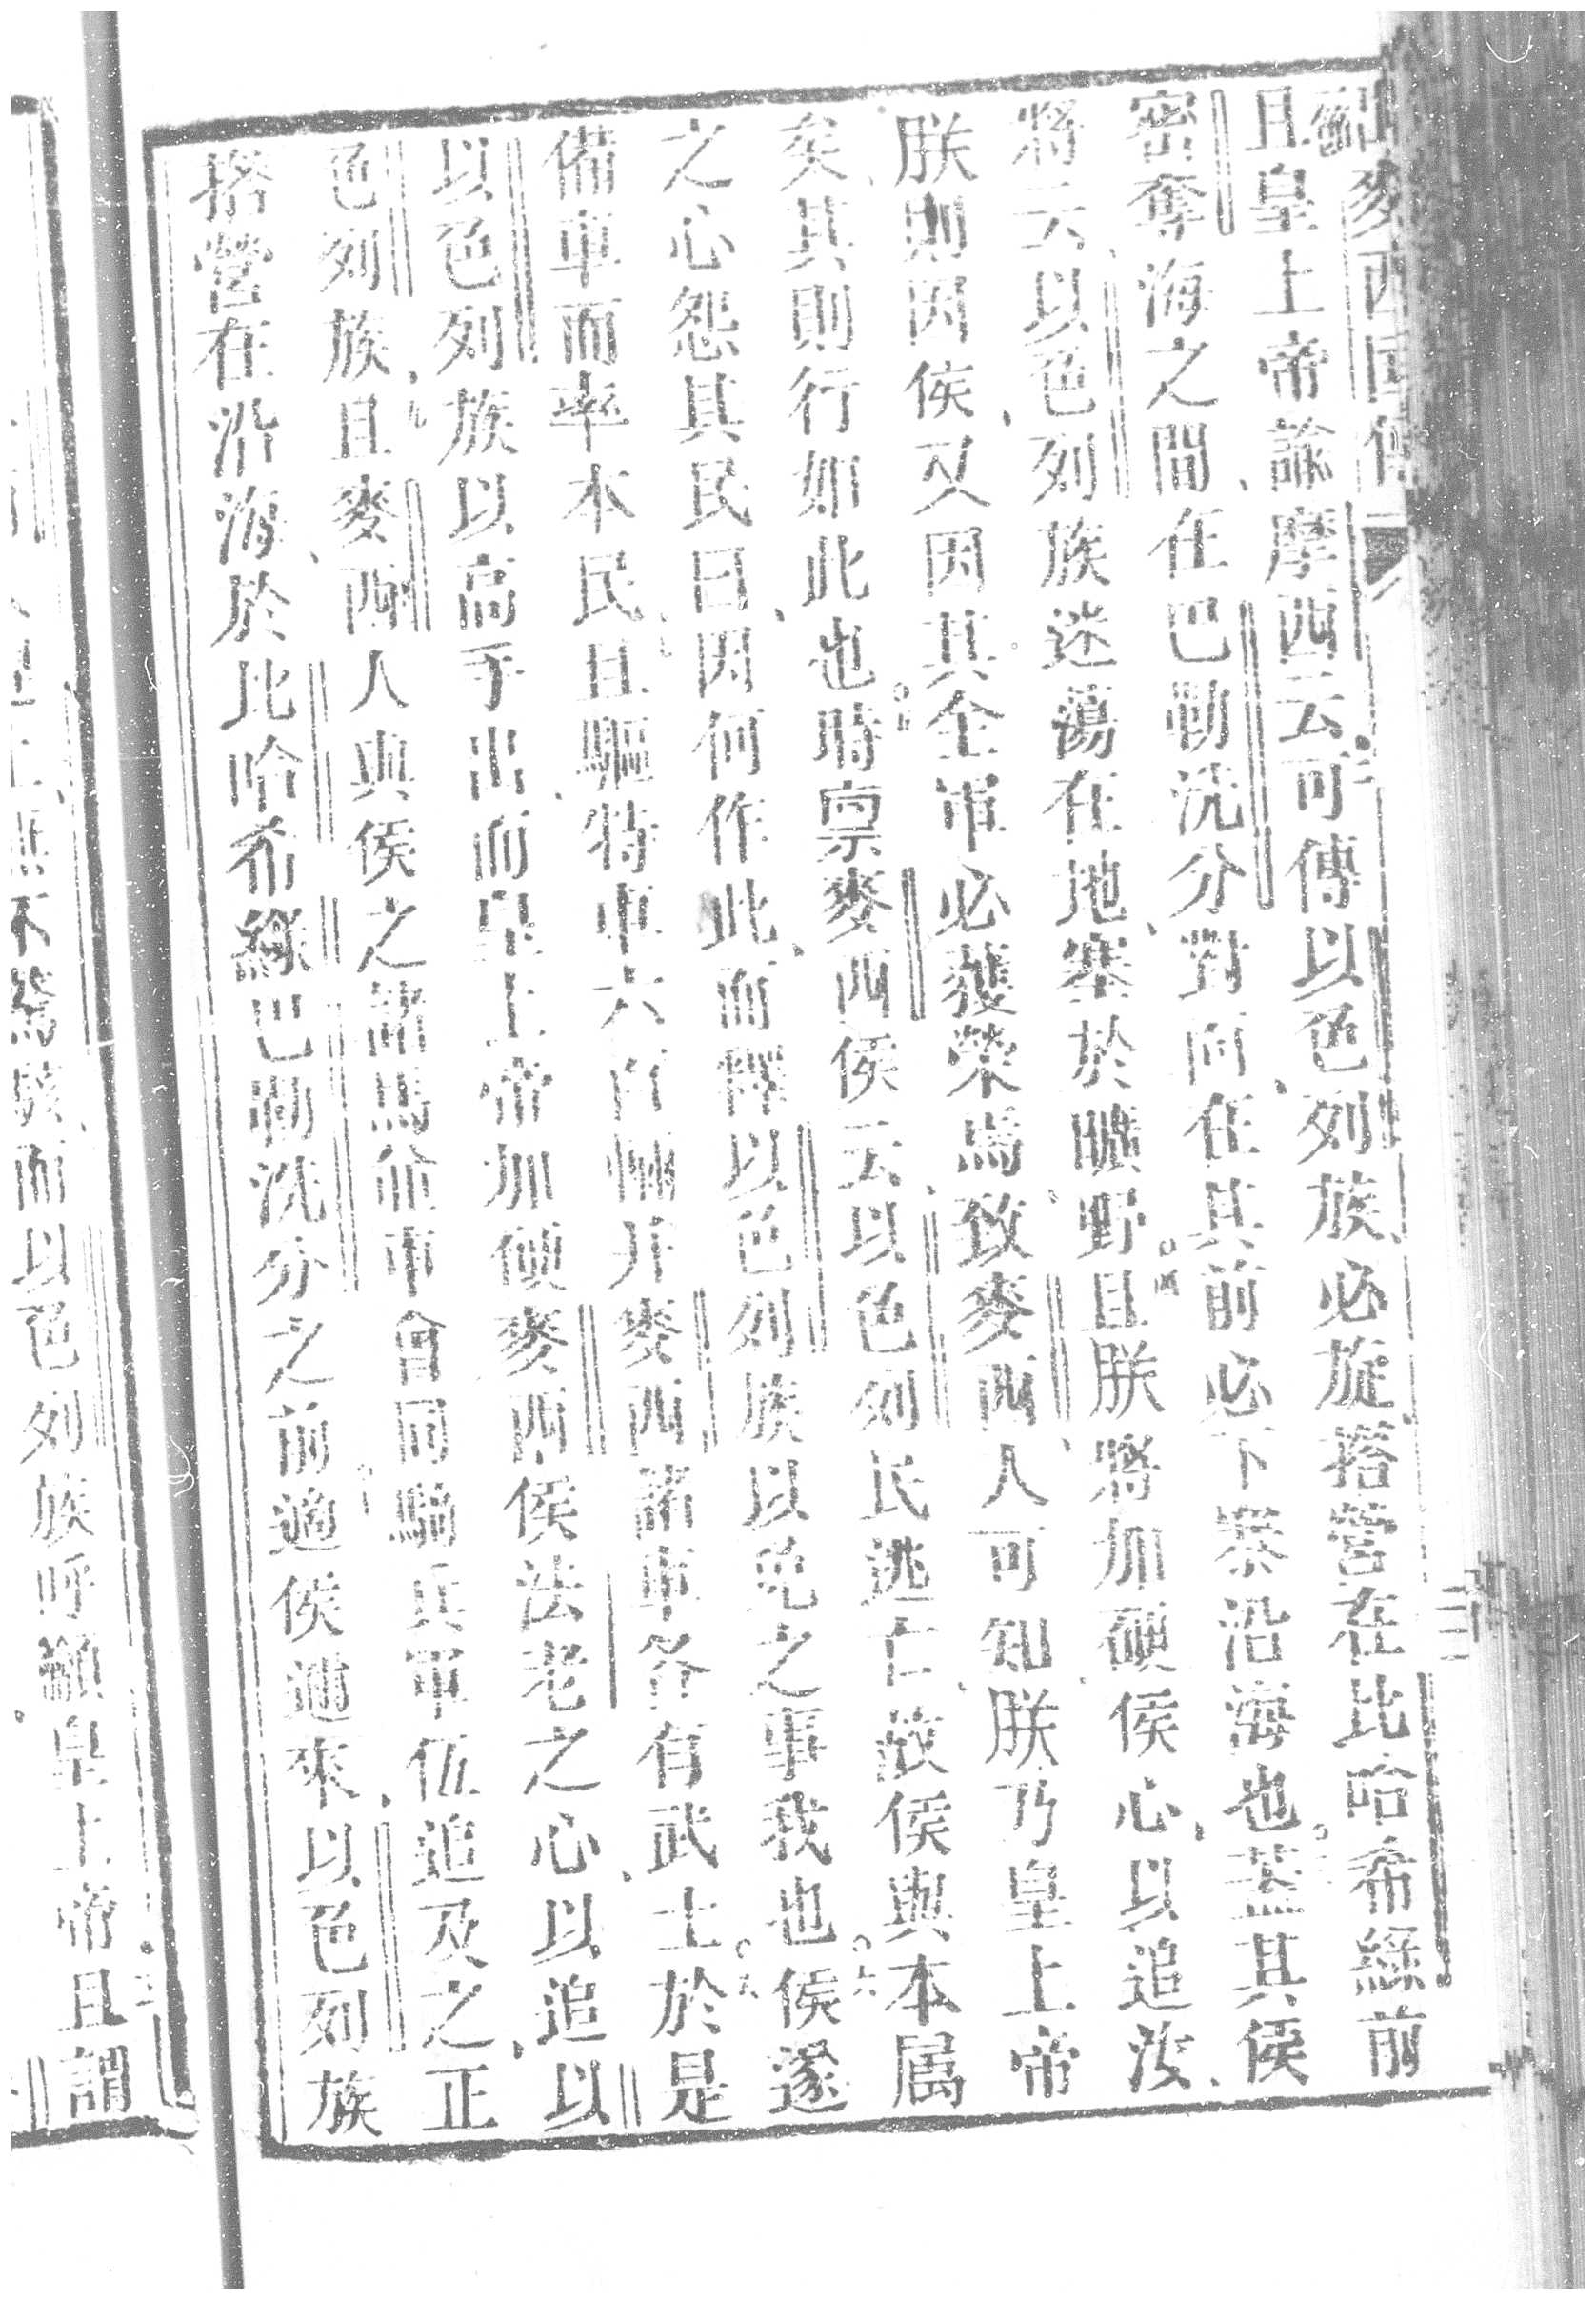 且皇上帝諭摩西云可傳以色列族必旋搭營在比哈希綠前
密奪海之間在巴勒洗分對向在其前必下寨沿海也蓋其侯
將云以色列族迷蕩在地塞於曠野且朕將加硬侯心以追汝
朕則因侯又因其全軍必獲榮焉致麥西人可知朕乃皇上帝
矣其則行如此也時稟麥西侯云以色列民逃亡故侯與本屬
之心怨其民曰因何作此而釋以色列族以免之事我也侯遂
備車而率本民且驅特車六百輛并麥西諸車各有武士於是
以色列族以高手出而皇上帝加硬麥西侯法老之心以追以
色列族且麥西人與侯之諸馬並車會同騎兵軍伍追及之正
搭營在沿海於比哈希綠巴勒洗分之前適侯邇來以色列族
不驚駭而以色列族呼籲皇上帝且謂